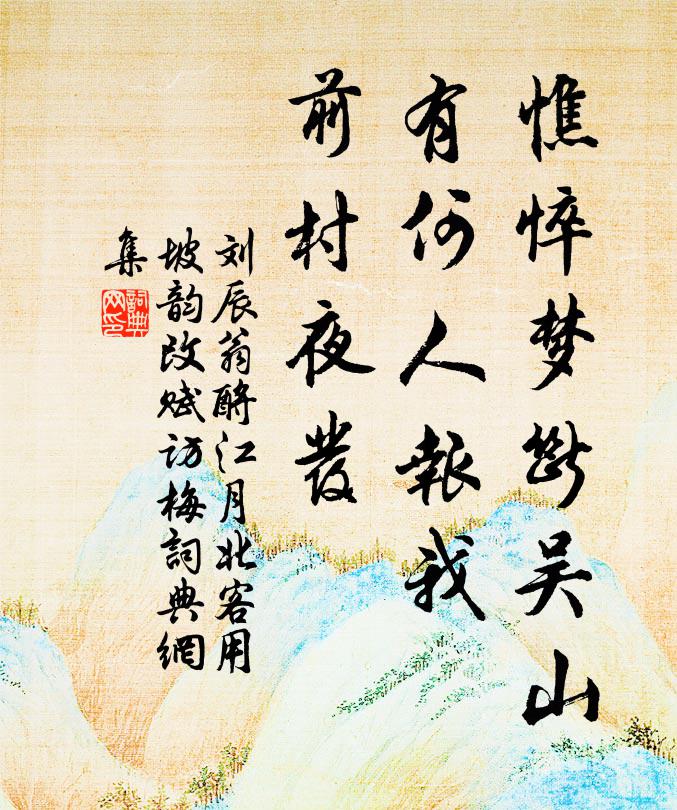 憔悴梦断吴山
有何人報我
前村夜發
刘辰翁酹江月北客用
坡韵改赋访梅詞典網
集
詞典
网印